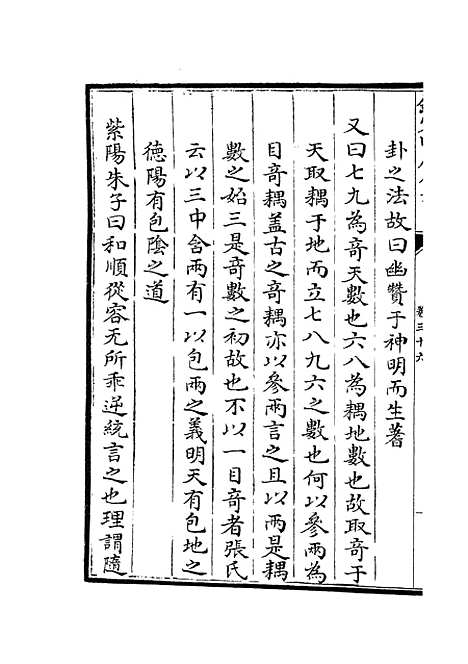 卷三十六
卦之法故曰幽贊于神明而生蓍
又曰七九為奇天數也六八為耦地數也故取奇于
天取耦于地而立七八九六之數也何以參兩為
目奇耦盖古之奇耦亦以參兩言之且以兩是耦
數之始三是奇數之初故也不以一目奇者張氏
云以三中含兩有一以包兩之義明天有包地之
德陽有包陰之道
紫陽朱子曰和順從容无所乖逆統言之也理謂隨